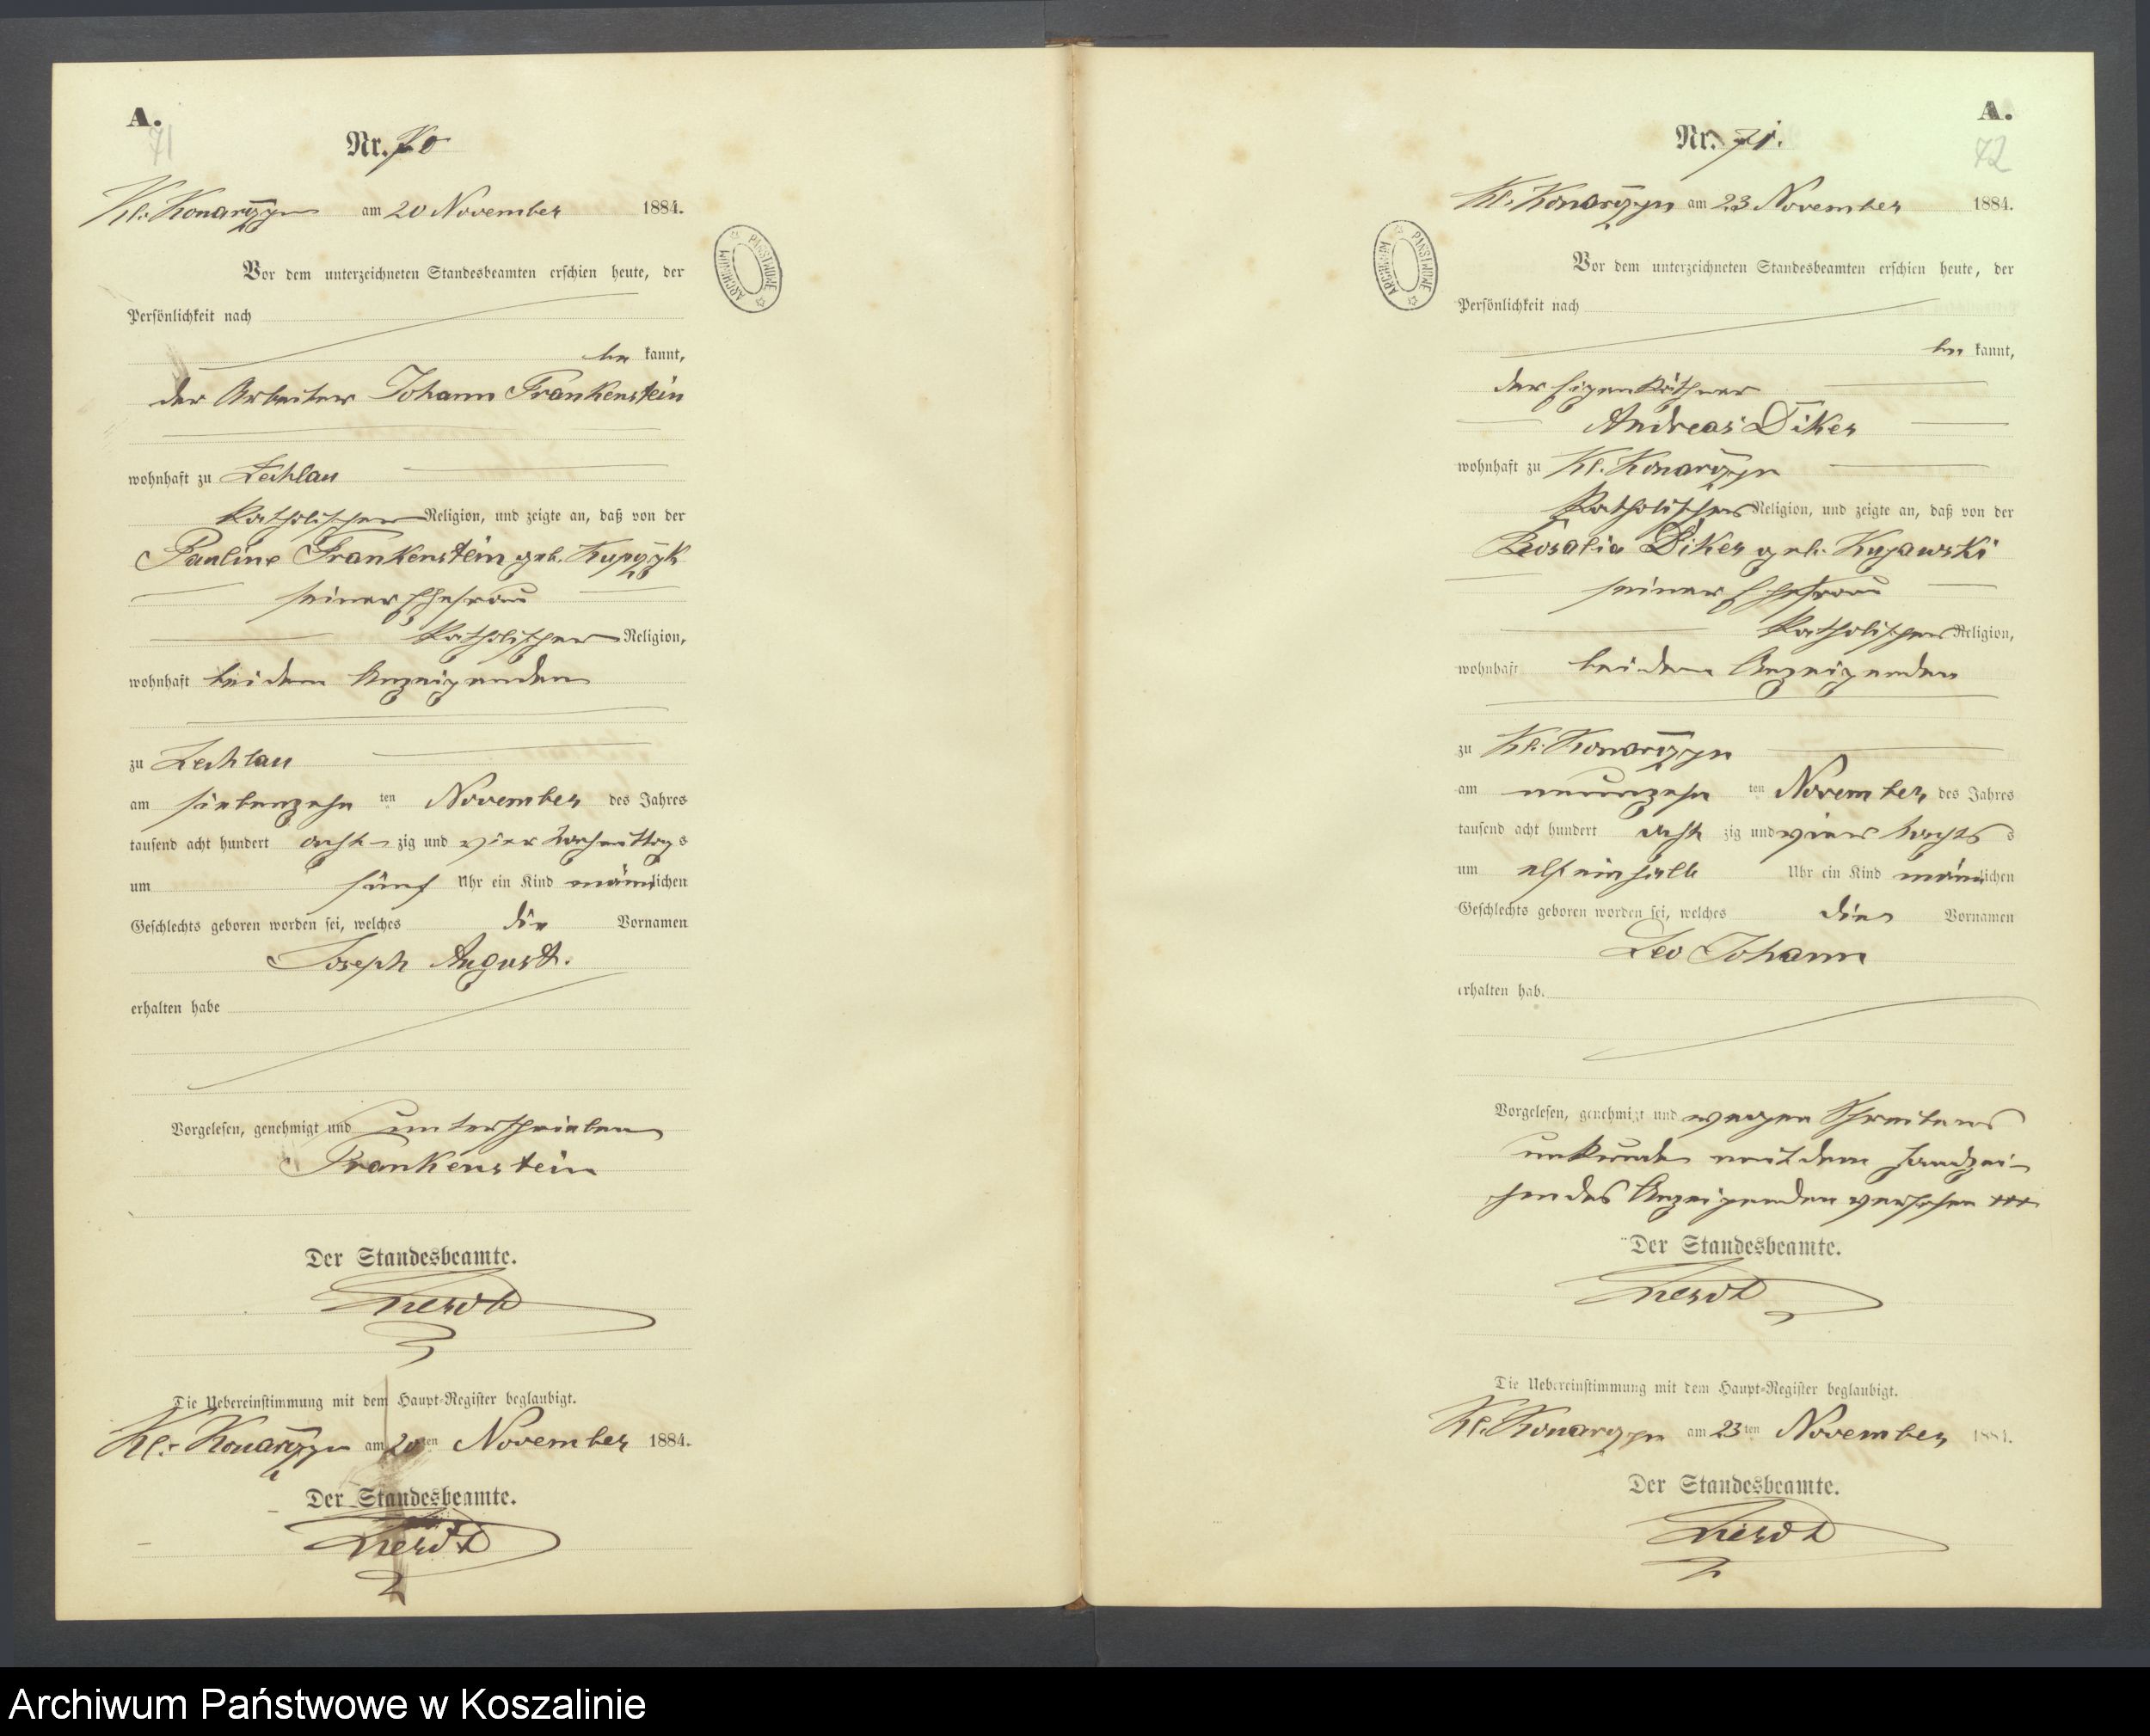 A.
71
Nr. 70
Kl: Konarczyn am 20 November 1884.
Vor dem unterzeichneten Standesbeamten erschien heute, der
Persönlichkeit nach
be kannt,
der Arbeiter Johann Frankenstein
wohnhaft zu Zechlau
katholischer Religion, und zeigte an, daß von der
Pauline Frankenstein geb. Kupczyk
seiner Ehefrau
katholischer Religion,
wohnhaft bei dem Anzeigenden
zu Zechlau
am siebenzehn ten November des Jahres
tausend acht hundert acht- zig und vier Nachmittags
um fünf Uhr ein Kind männlichen
Geschlechts geboren worden sei, welches die Vornamen
Joseph August.
erhalten habe
Vorgelesen, genehmigt und unterschrieben
Frankenstein
Der Standesbeamte.
Die Uebereinstimmung mit dem Haupt-Register beglaubigt.
Kl: Konarczyn am 20ten November 1884.
Der Standesbeamte.
ARCHIWUM PAŃSTWOWE
A.
72
Nr. 71.
Kl. Konarczyn am 23 November 1884.
Vor dem unterzeichneten Standesbeamten erschien heute, der
Persönlichkeit nach
be kannt,
der Eigenkäthner
Andreas Diker
wohnhaft zu Kl. Konarczyn
katholischer Religion, und zeigte an, daß von der
Rosalia Diker geb. Kujawski
seiner Ehefrau
katholischer Religion,
wohnhaft bei dem Anzeigenden
zu Kl: Konarczyn
am neunzehn ten November des Jahres
tausend acht hundert acht zig und vier Nachts
um elf ein halb Uhr ein Kind männlichen
Geschlechts geboren worden sei, welches die Vornamen
Leo Johann
erhalten hab.
Vorgelesen, genehmigt und wegen Schreibens
unkunde mit dem Handzei-
chen des Anzeigenden versehen +++
Der Standesbeamte.
Die Uebereinstimmung mit dem Haupt-Register beglaubigt.
Kl. Konarczyn am 23ten November 1884.
Der Standesbeamte.
ARCHIWUM PAŃSTWOWE
Archiwum Państwowe w Koszalinie